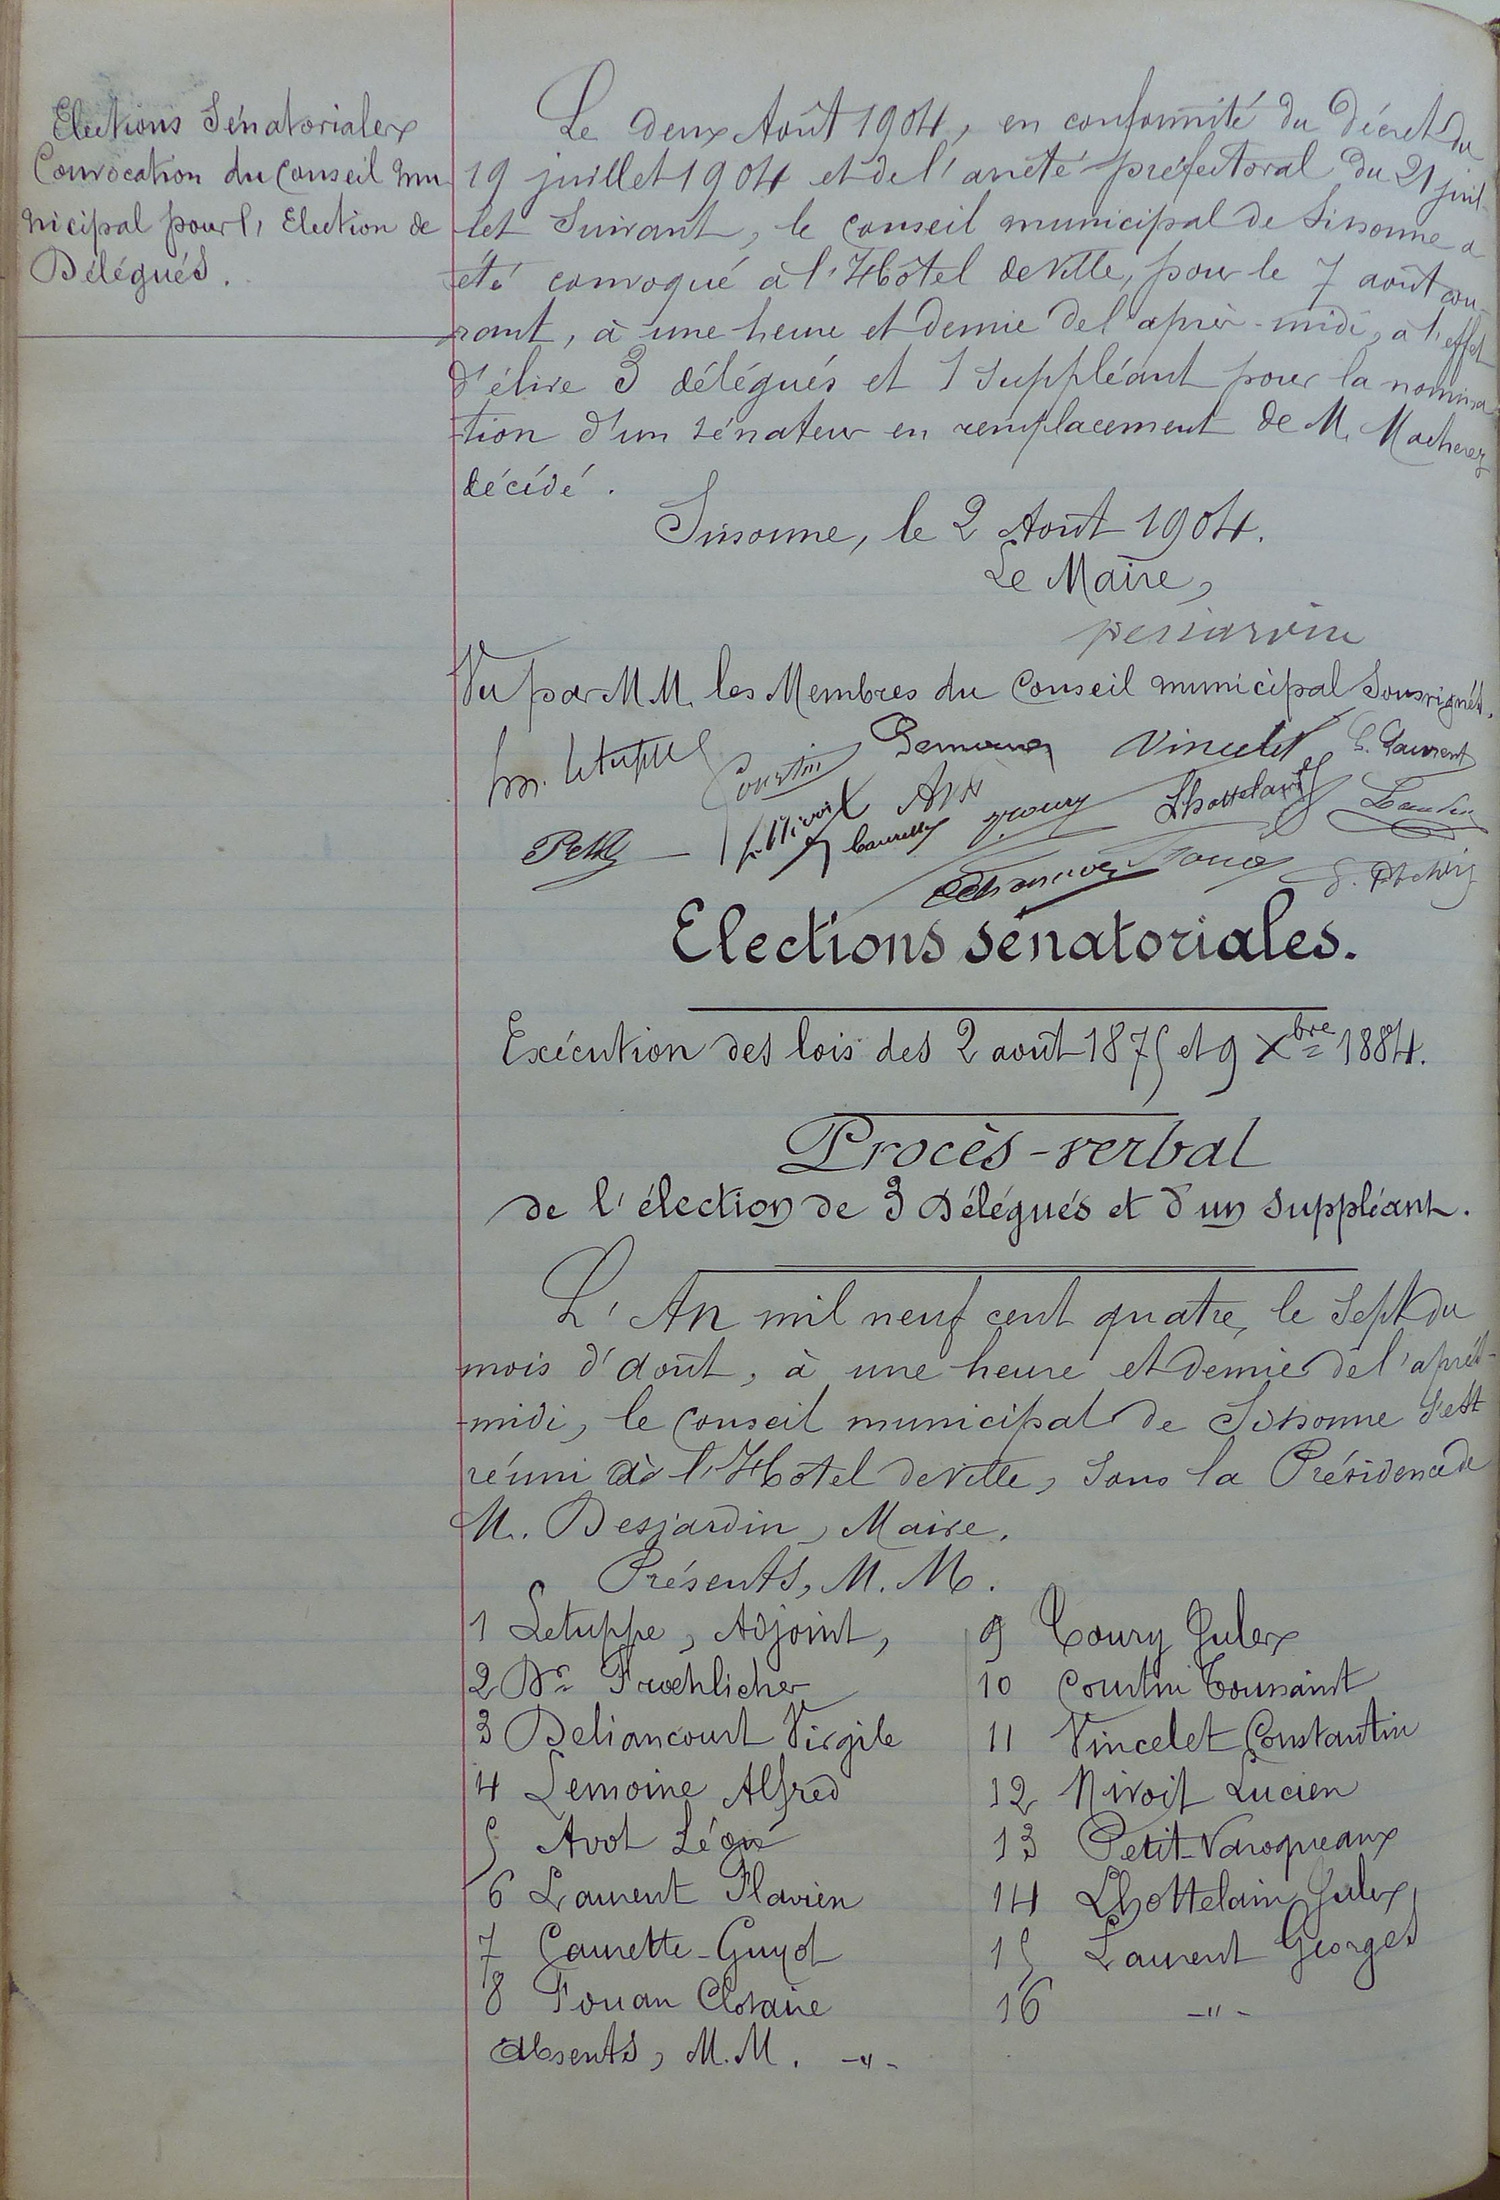 Elections Sénatoriales
Convocation du Conseil mu
nicipal pour l'Election de
Délégués.
Le deux Août 1904, en conformité du Décret du
19 juillet 1904 et de l'arrêté préfectoral du 21 juil-
let suivant, le Conseil municipal de Sissonne a
été convoqué à l'Hôtel de Ville, pour le 7 août cou-
rant, à une heure et demie de l'après-midi, à l'effet
d'élire 3 délégués et 1 suppléant pour la nomina
tion d'un sénateur en remplacement de M. Macherez
décédé.
Sissonne, le 2 Août 1904.
Le Maire,
Desjardin
Vu par M.M. les Membres du Conseil municipal soussignés.
Letuppe Courtin Lemoine Vincelet G. Laurent
Petit Nivoit Avot Caurette Lhottelain
Elections sénatoriales.
Exécution des lois des 2 août 1875 et 9 Xbre 1884.
Procès-verbal
de l'élection de 3 Délégués et d'un suppléant.
L'An mil neuf cent quatre, le sept du
mois d'août, à une heure et demie de l'après-
midi, le Conseil municipal de Sissonne s'est
réuni à l'Hôtel de Ville, sous la Présidence de
M. Desjardin, Maire.
Présents, M.M.
1 Letuppe, Adjoint,
2 Dr Froehlicher
3 Deliancourt Virgile
4 Lemoine Alfred
5 Avot Léon
6 Laurent Flavien
7 Caurette-Guyot
8 Fouan Clotaire
9 Coury Jules
10 Courtin Toussaint
11 Vincelet Constantin
12 Nivoit Lucien
13 Petit-Varoqueaux
14 Lhottelain Jules
15 Laurent Georges
16 -"-
Absents, M.M. -"-